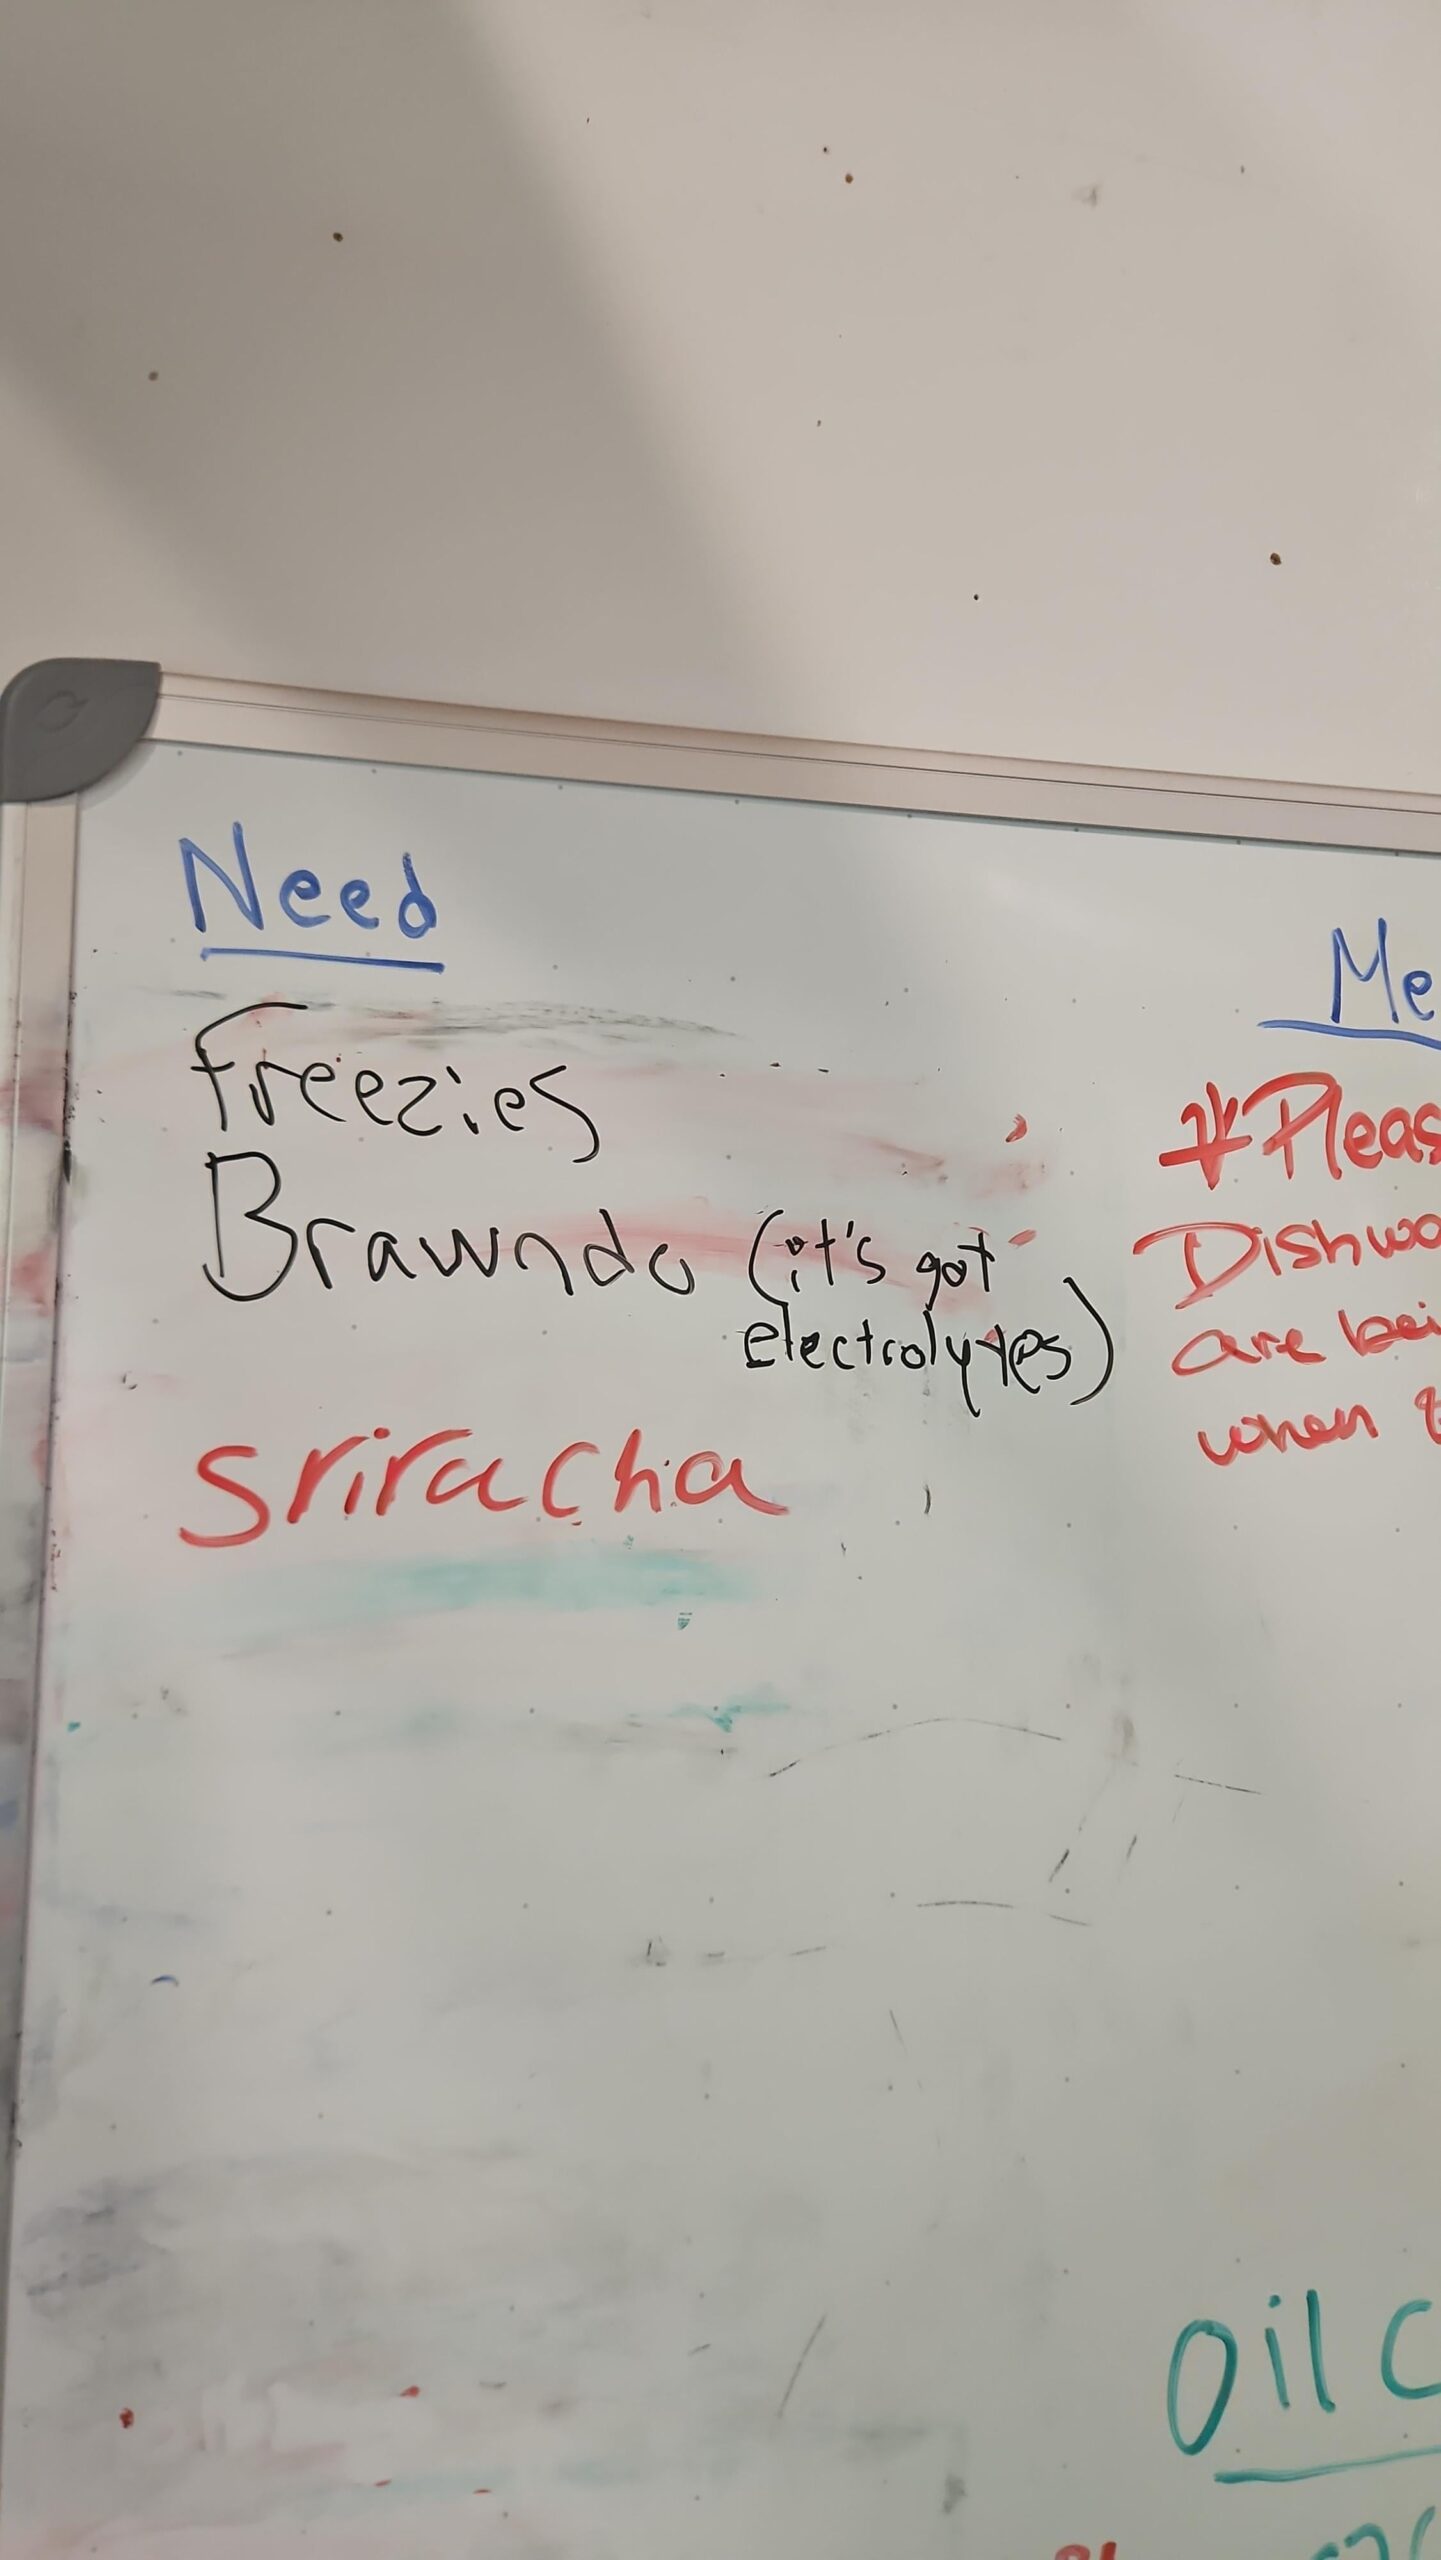 Need
Freezies
Brawndo (it's got
electrolytes)
sriracha
Me
*Pleas
Dishwa
are bei
when
Oil C